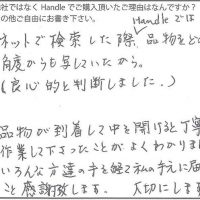 社ではなく Handle でご購入頂いたご理由はなんですか?
の他ご自由にお書き下さい。
Handleでは
ネットで検索した際、品物をど
角度からも写していたから。
(良心的と判断しました。)
品物が到着して中を開けると丁寧
作業して下さったことがよくわかりま
いろんな方達の手を経て私の手元に届
こと感謝致します。 大切にします